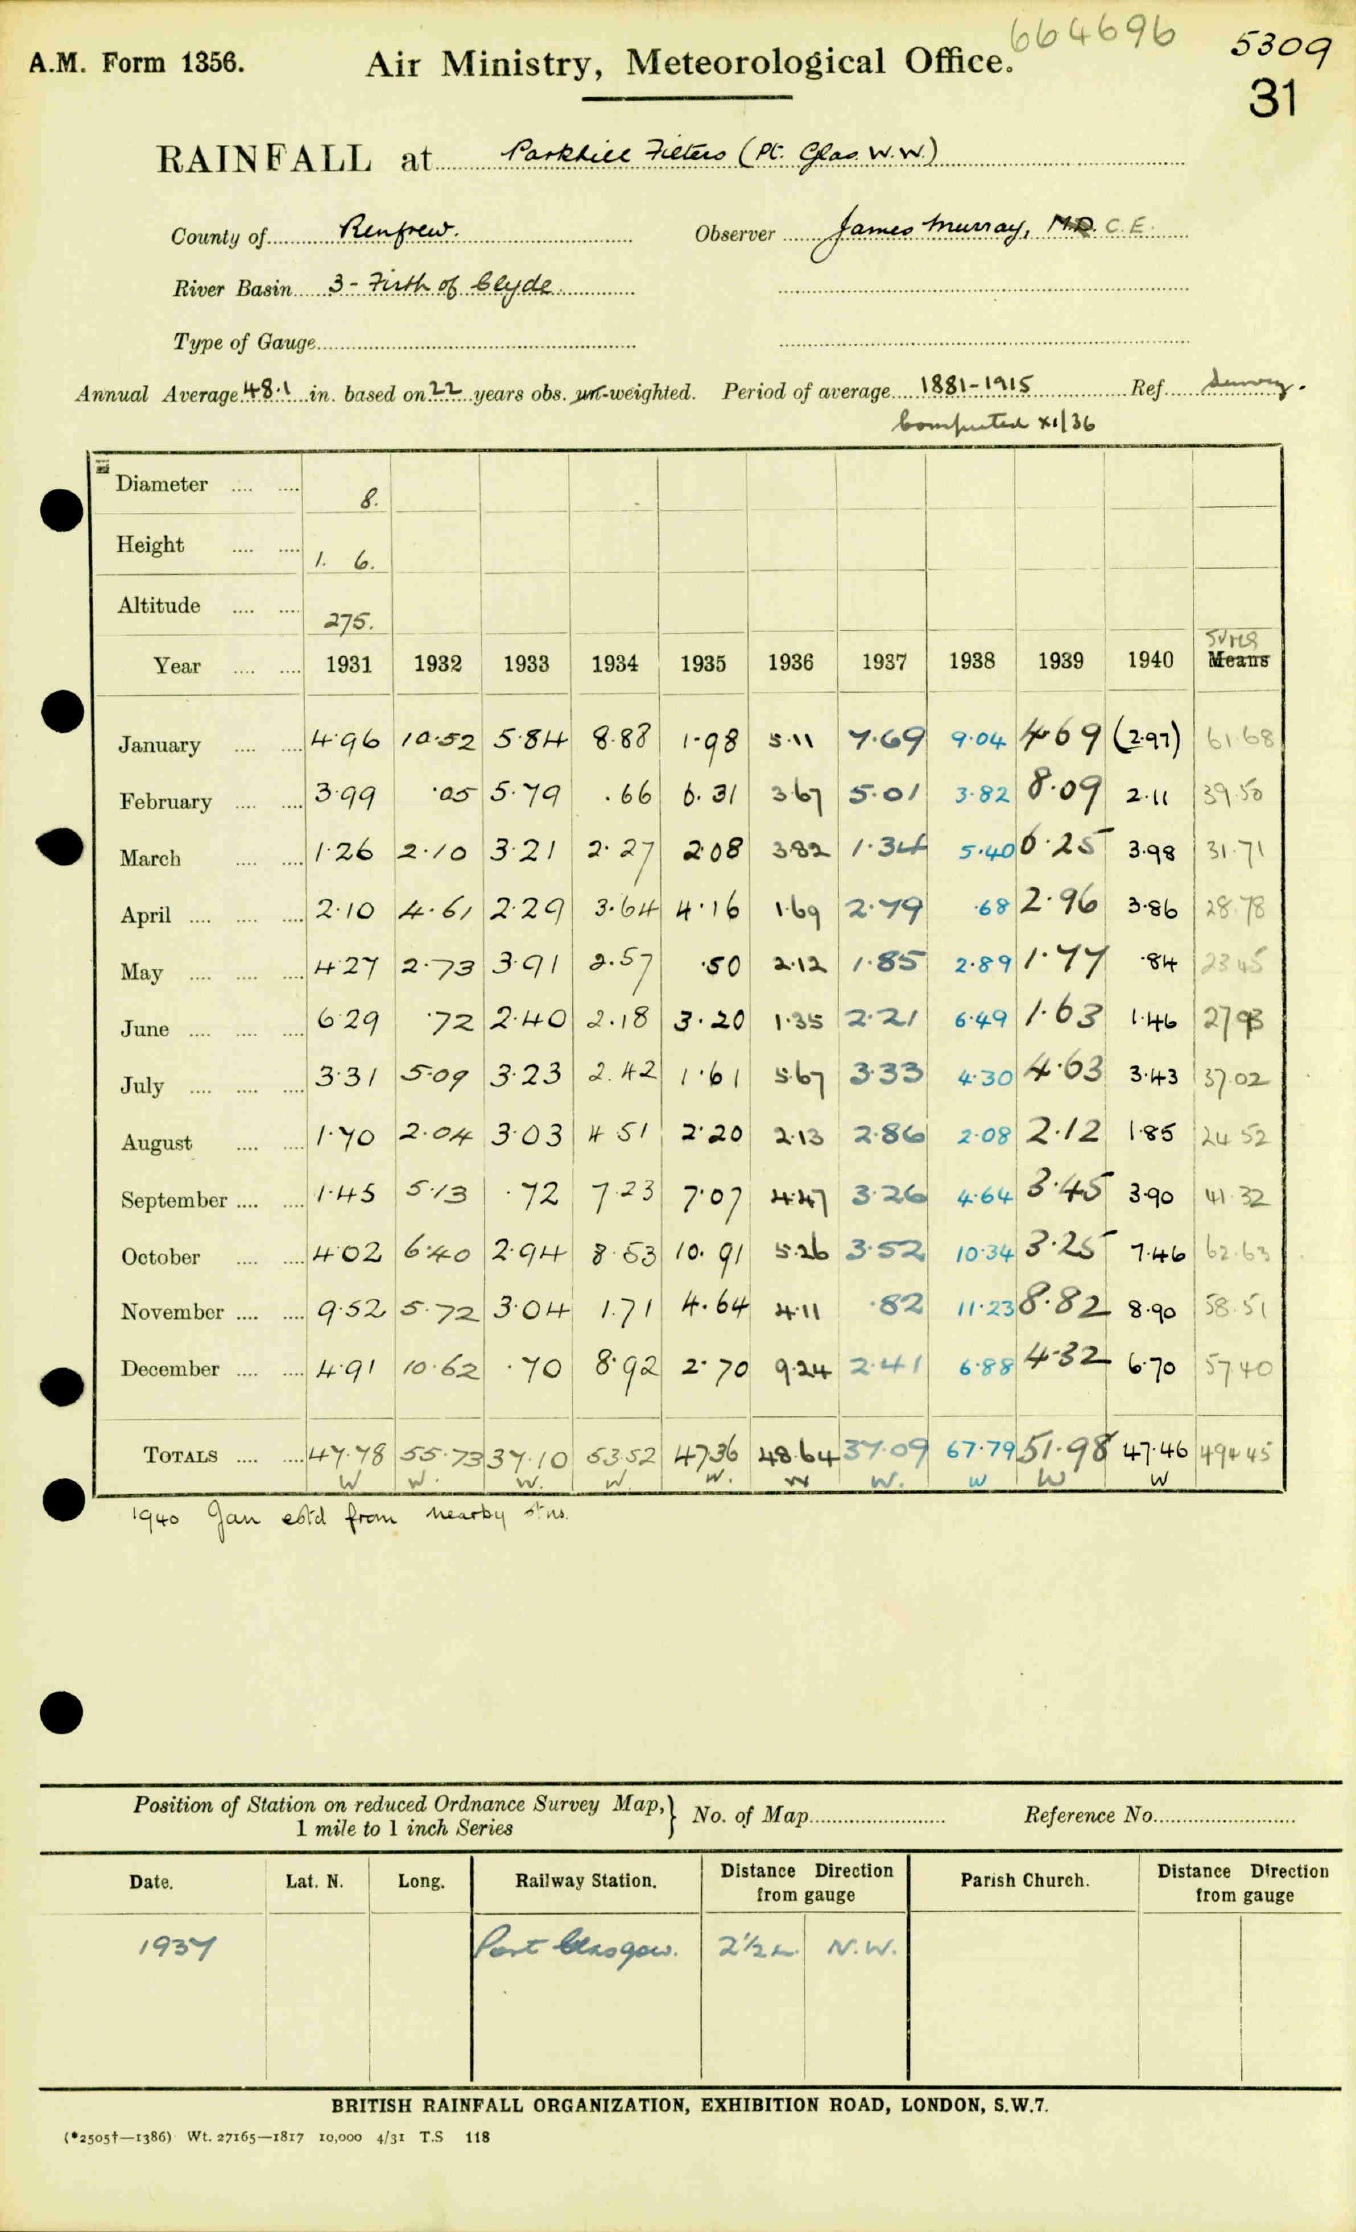 664696
5309
A.M. Form 1356. Air Ministry, Meteorological Office.
31
RAINFALL at Parkhill Filters (Pt. Glas. W.W.)
County of Renfrew. Observer James Murray, M.D. C.E.
River Basin 3 - Firth of Clyde
Type of Gauge
Annual Average 48.1 in. based on 22 years obs. un-weighted. Period of average 1881-1915 Ref.
Computed XI/36
Diameter 8.
Height 1. 6.
Altitude 275.
Sums
Year 1931 1932 1933 1934 1935 1936 1937 1938 1939 1940 Means
January 4.96 10.52 5.84 8.88 1.98 5.11 7.69 9.04 4.69 (2.97) 61.68
February 3.99 .05 5.79 .66 6.31 3.67 5.01 3.82 8.09 2.11 39.50
March 1.26 2.10 3.21 2.27 2.08 3.82 1.34 5.40 6.25 3.98 31.71
April 2.10 4.61 2.29 3.64 4.16 1.69 2.79 .68 2.96 3.86 28.78
May 4.27 2.73 3.91 2.57 .50 2.12 1.85 2.89 1.77 .84 23.45
June 6.29 .72 2.40 2.18 3.20 1.35 2.21 6.49 1.63 1.46 27.93
July 3.31 5.09 3.23 2.42 1.61 5.67 3.33 4.30 4.63 3.43 37.02
August 1.70 2.04 3.03 4.51 2.20 2.13 2.86 2.08 2.12 1.85 24.52
September 1.45 5.13 .72 7.23 7.07 4.47 3.26 4.64 3.45 3.90 41.32
October 4.02 6.40 2.94 8.53 10.91 5.26 3.52 10.34 3.25 7.46 62.63
November 9.52 5.72 3.04 1.71 4.64 4.11 .82 11.23 8.82 8.90 58.51
December 4.91 10.62 .70 8.92 2.70 9.24 2.41 6.88 4.32 6.70 57.40
TOTALS 47.78 55.73 37.10 53.52 47.36 48.64 37.09 67.79 51.98 47.46 494.45
W W. W. W. W. W W. W W W
1940 Jan estd from nearby stns.
Position of Station on reduced Ordnance Survey Map, } No. of Map Reference No.
1 mile to 1 inch Series
Date. Lat. N. Long. Railway Station. Distance Direction from gauge Parish Church. Distance Direction from gauge
1937 Port Glasgow. 2½ N.W.
BRITISH RAINFALL ORGANIZATION, EXHIBITION ROAD, LONDON, S.W.7.
(*2505†—1386) Wt. 27165—1817 10,000 4/31 T.S 118